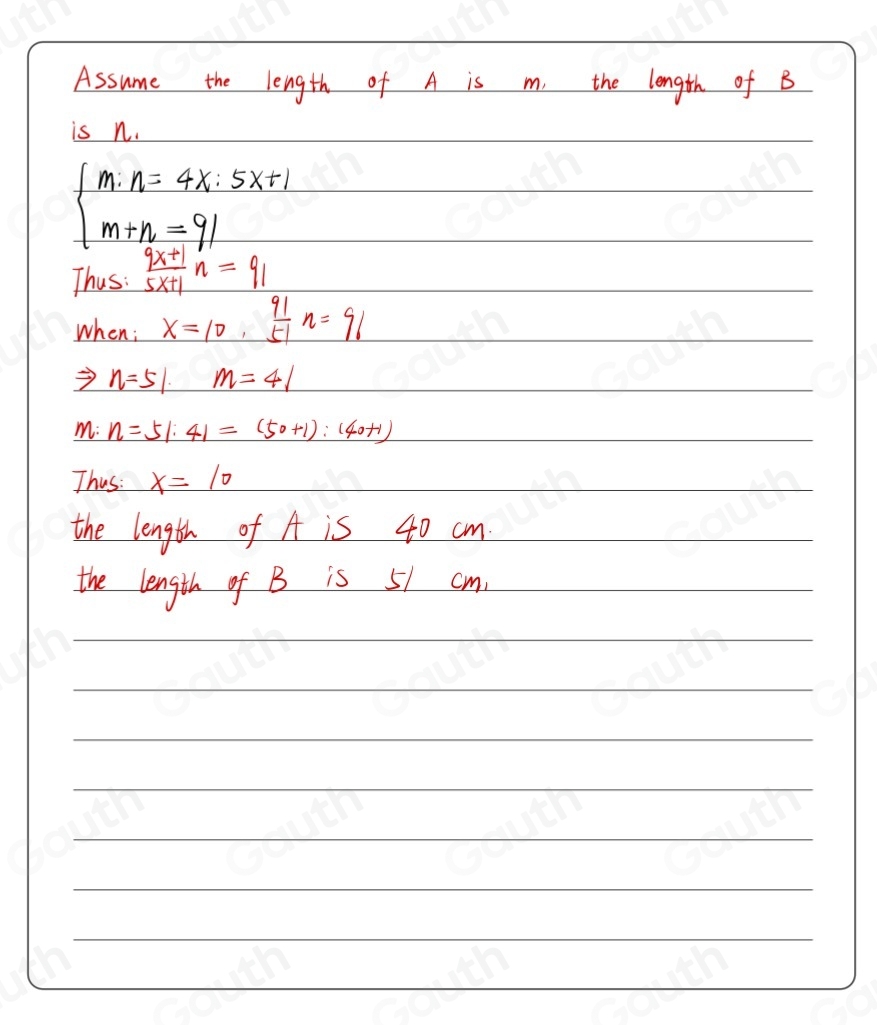 Assume the length of A is m, the length of B
is n.
{ m:n = 4x:5x+1
m+n = 91
Thus: \frac{9x+1}{5x+1} n = 91
When: x=10, \frac{91}{51} n = 91
⇒ n=51. m=41
m:n=51:41 = (50+1):(40+1)
Thus: x= 10
the length of A is 40 cm.
the length of B is 51 cm,